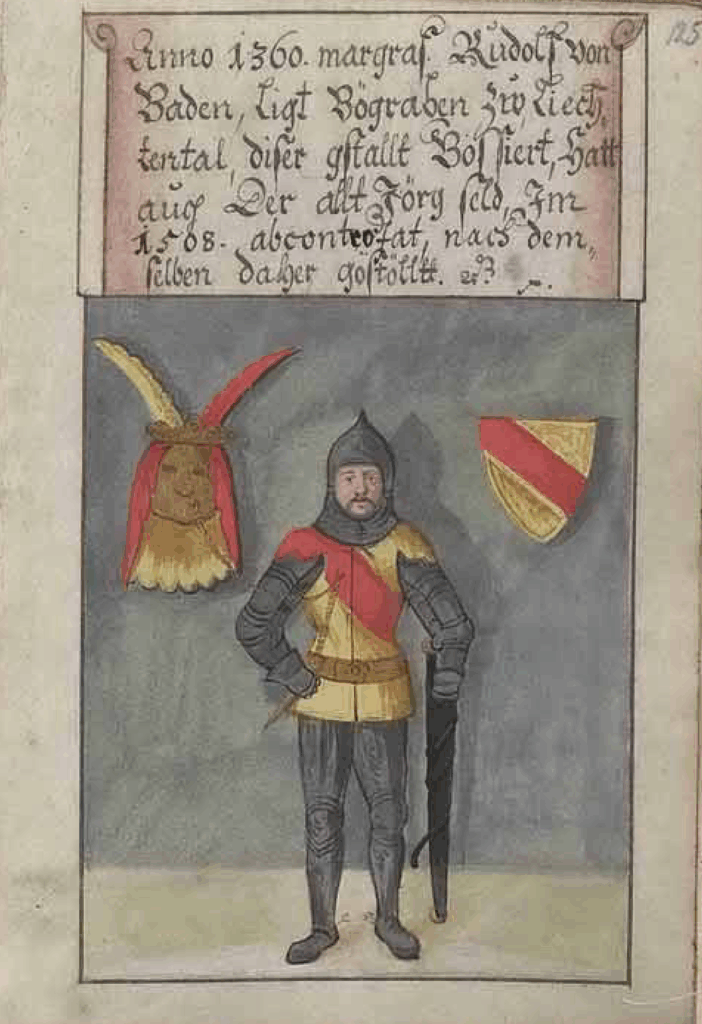 Anno 1360. margraf. Rudolf von
Baden, ligt Bögraben zuo Liech,
tental, diser gstallt Bössiert, Hatt
auch Der allt Jörg seld, Im
1508. abcontrofat, nach dem,,
selben daher göstölltt.
125